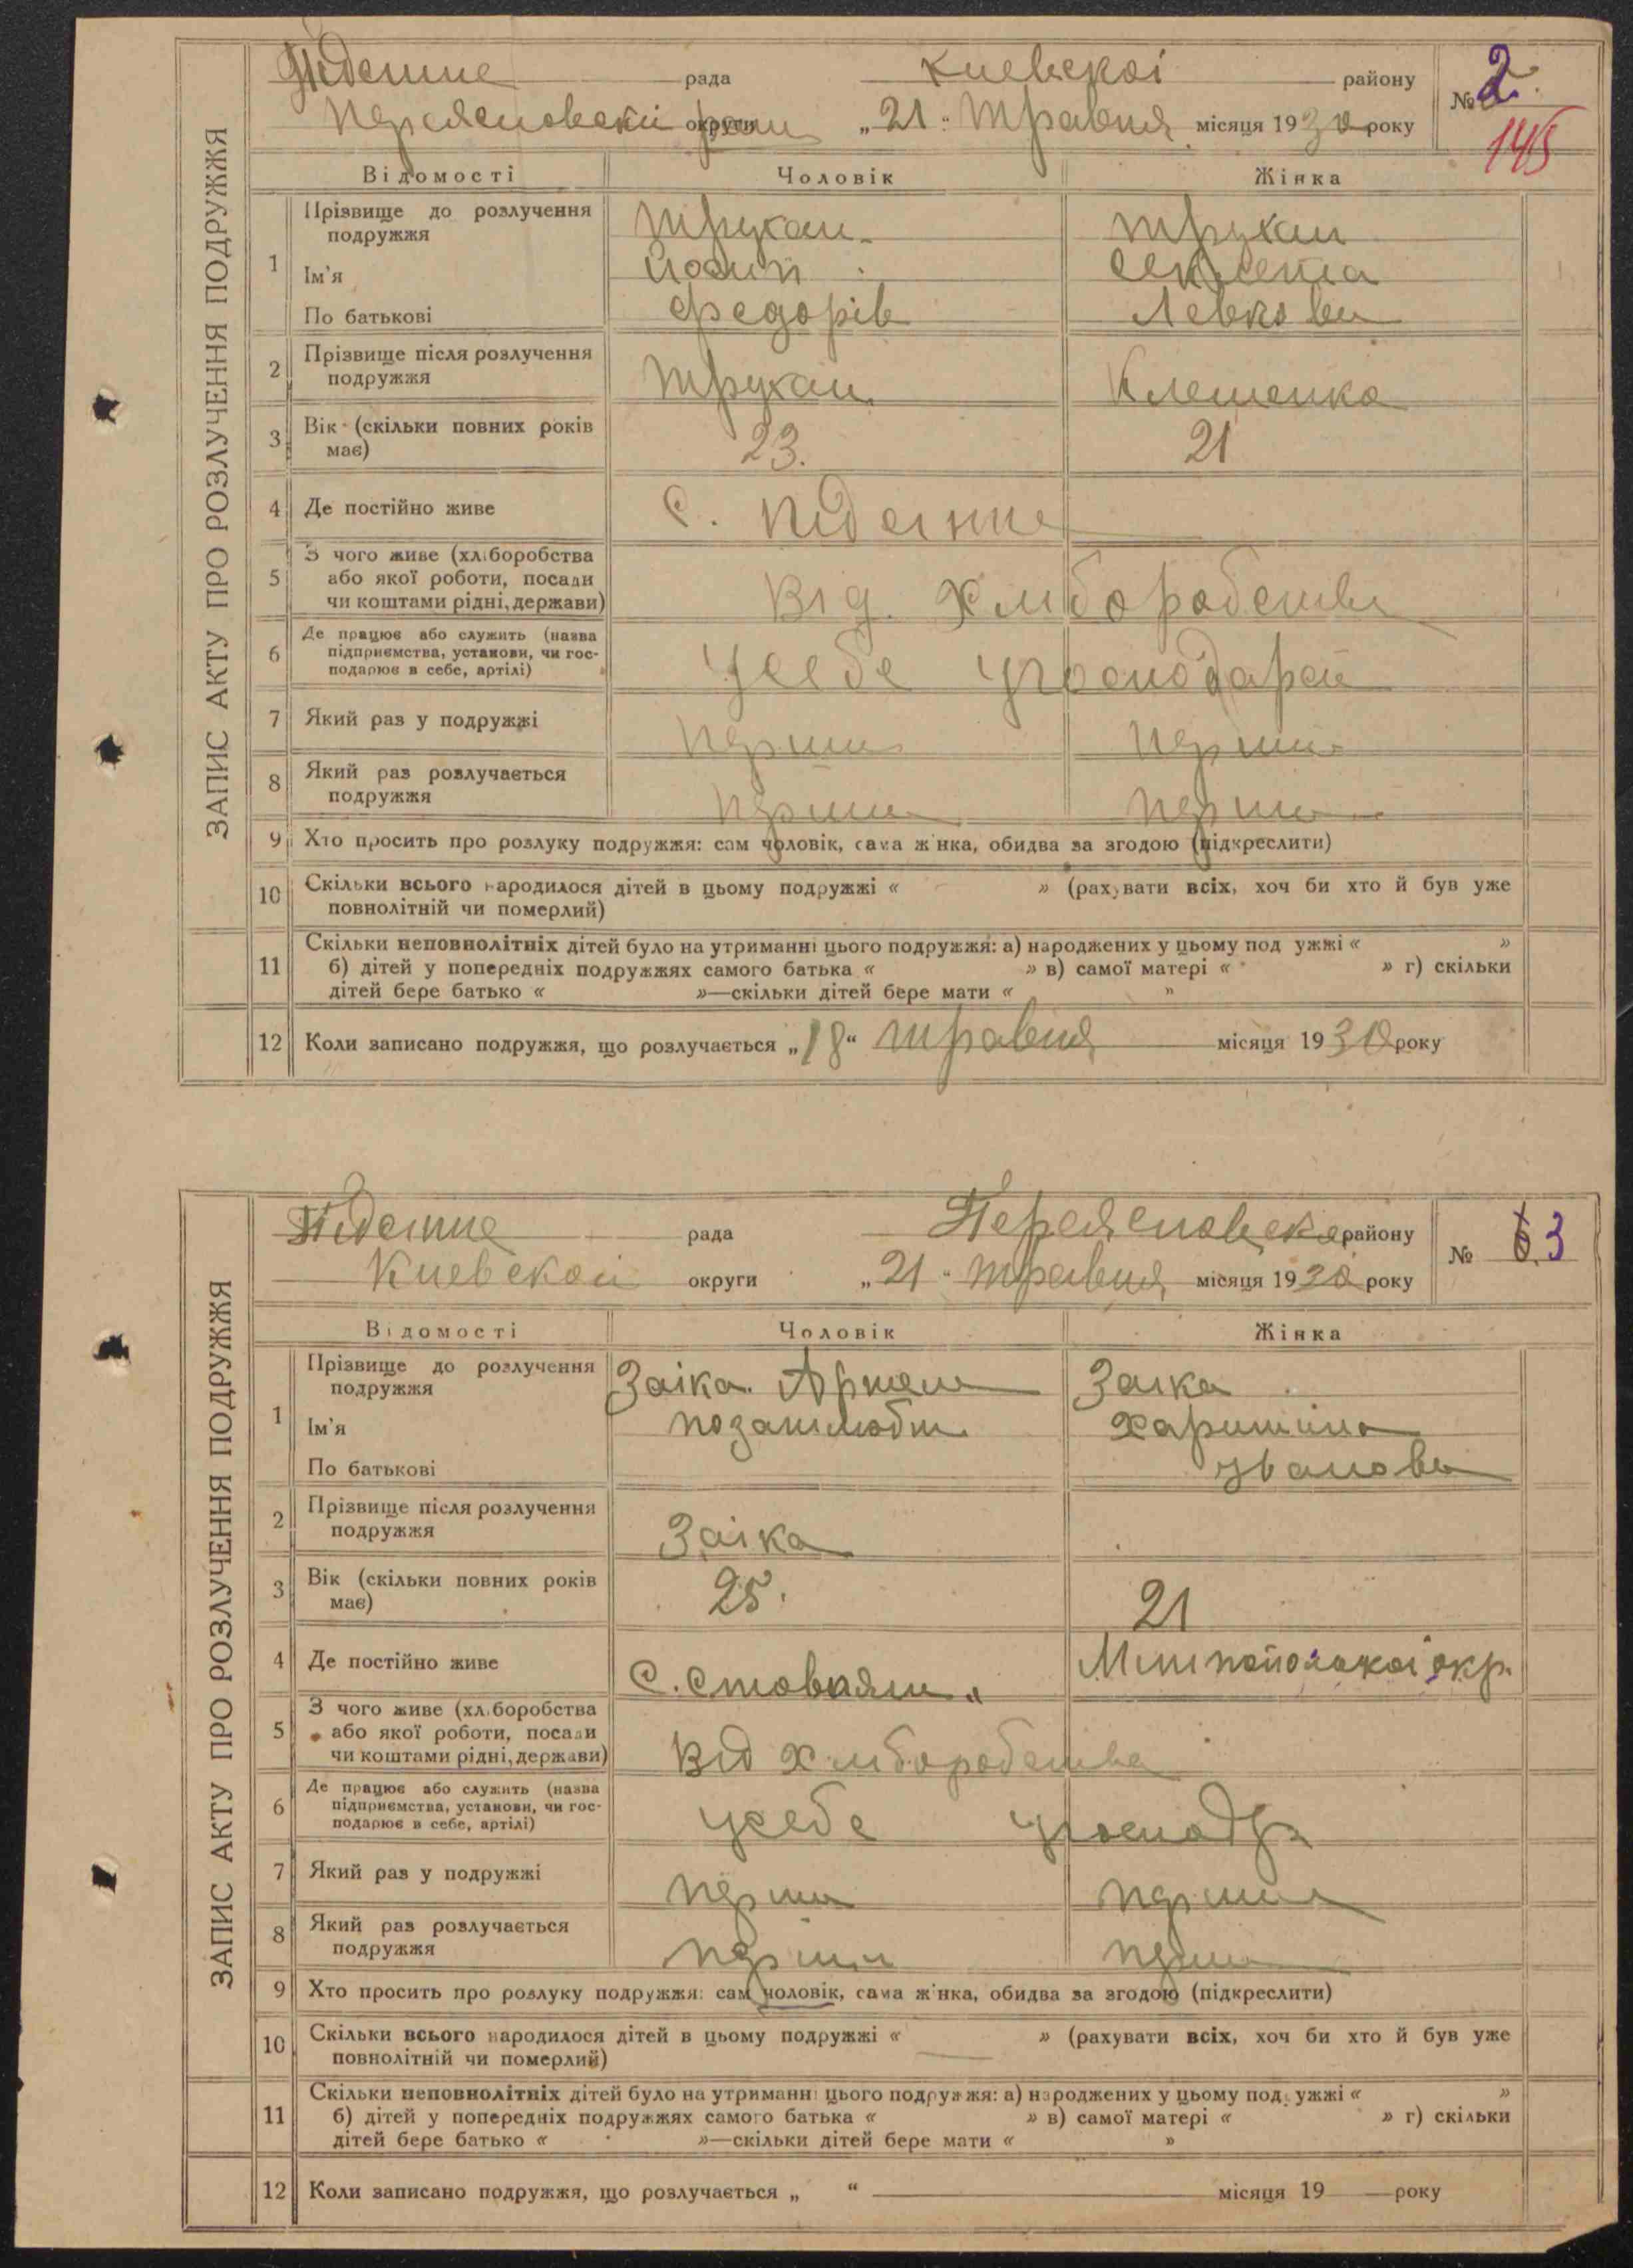 ЗАПИС АКТУ ПРО РОЗЛУЧЕННЯ ПОДРУЖЖЯ
рада Киевскоі району № 2
округи „21“ Травня місяця 1930 року 145
Відомості Чоловік Жінка
1 Прізвище до розлучення подружжя Трухан Трухан
Ім'я Йосип
По батькові Федорів Левкова
2 Прізвище після розлучення подружжя Трухан
3 Вік (скільки повних років має) 23. 21
4 Де постійно живе С.
5 З чого живе (хліборобства
або якої роботи, посади
чи коштами рідні, держави) Від Хліборобства
6 Де працює або служить (назва
підприємства, установи, чи гос-
подарює в себе, артілі) усебе
7 Який раз у подружжі перши перши
8 Який раз розлучається
подружжя перши перши
9 Хто просить про розлуку подружжя: сам чоловік, сама жінка, обидва за згодою (підкреслити)
10 Скільки всього народилося дітей в цьому подружжі « » (рахувати всіх, хоч би хто й був уже
повнолітній чи померлий)
11 Скільки неповнолітніх дітей було на утриманні цього подружжя: а) народжених у цьому подружжі « »
б) дітей у попередніх подружжях самого батька « » в) самої матері « » г) скільки
дітей бере батько « »—скільки дітей бере мати « »
12 Коли записано подружжя, що розлучається „18“ травня місяця 1930 року
ЗАПИС АКТУ ПРО РОЗЛУЧЕННЯ ПОДРУЖЖЯ
рада району № 3
Киевскоі округи „21“ травня місяця 1930 року
Відомості Чоловік Жінка
1 Прізвище до розлучення
подружжя Заіка Заіка
Ім'я Харитина
По батькові Іванова
2 Прізвище після розлучення
подружжя Заіка
3 Вік (скільки повних років
має) 25. 21
4 Де постійно живе С. окр.
5 З чого живе (хліборобства
або якої роботи, посади
чи коштами рідні, держави) Від Хліборобства
6 Де працює або служить (назва
підприємства, установи, чи гос-
подарює в себе, артілі) усебе
7 Який раз у подружжі перши перши
8 Який раз розлучається
подружжя перши перши
9 Хто просить про розлуку подружжя: сам чоловік, сама жінка, обидва за згодою (підкреслити)
10 Скільки всього народилося дітей в цьому подружжі « » (рахувати всіх, хоч би хто й був уже
повнолітній чи померлий)
11 Скільки неповнолітніх дітей було на утриманні цього подружжя: а) народжених у цьому подружжі « »
б) дітей у попередніх подружжях самого батька « » в) самої матері « » г) скільки
дітей бере батько « »—скільки дітей бере мати « »
12 Коли записано подружжя, що розлучається „ “ місяця 19 року